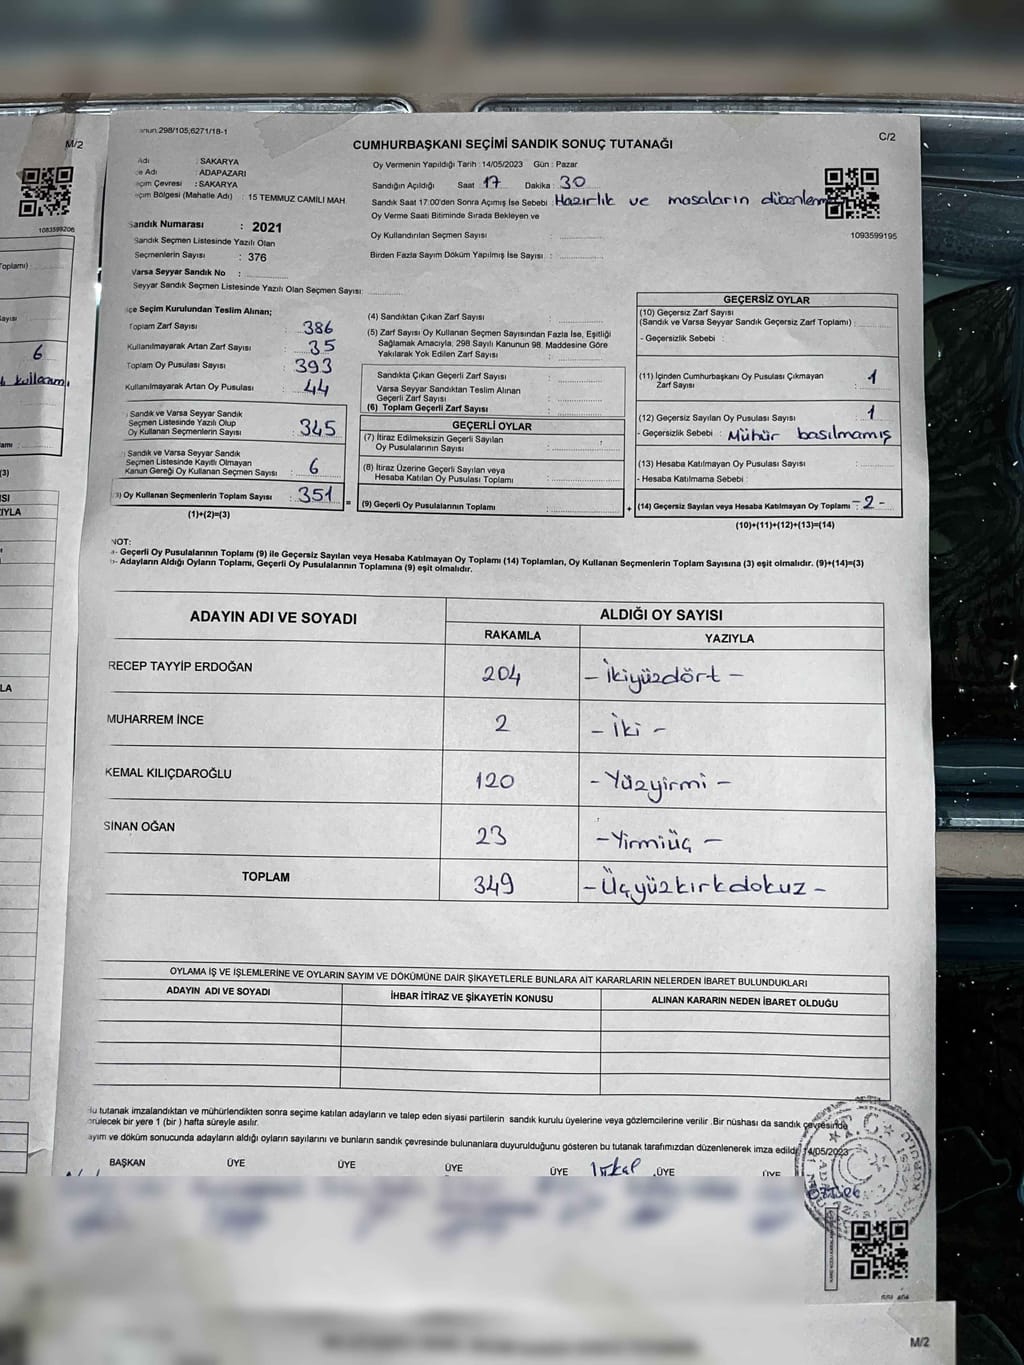 M/2
1083599206
6
anun.298/105,6271/18-1
C/2
CUMHURBAŞKANI SEÇİMİ SANDIK SONUÇ TUTANAĞI
Adı : SAKARYA
çe Adı : ADAPAZARI
eçim Çevresi : SAKARYA
eçim Bölgesi (Mahalle Adı) : 15 TEMMUZ CAMİLİ MAH.
Oy Vermenin Yapıldığı Tarih : 14/05/2023 Gün : Pazar
Sandığın Açıldığı Saat 17 Dakika : 30
Sandık Saat 17:00'den Sonra Açımış İse Sebebi : Hazırlık ve masaların düzenlenm
Oy Verme Saati Bitiminde Sırada Bekleyen ve
Oy Kullandırılan Seçmen Sayısı :
Birden Fazla Sayım Döküm Yapılmış İse Sayısı :
1093599195
Sandık Numarası : 2021
Sandık Seçmen Listesinde Yazılı Olan
Seçmenlerin Sayısı : 376
Varsa Seyyar Sandık No :
Seyyar Sandık Seçmen Listesinde Yazılı Olan Seçmen Sayısı:
lçe Seçim Kurulundan Teslim Alınan;
Toplam Zarf Sayısı : 386
Kullanılmayarak Artan Zarf Sayısı : 35
Toplam Oy Pusulası Sayısı : 393
Kullanılmayarak Artan Oy Pusulası : 44
) Sandık ve Varsa Seyyar Sandık
Seçmen Listesinde Yazılı Olup
Oy Kullanan Seçmenlerin Sayısı : 345
) Sandık ve Varsa Seyyar Sandık
Seçmen Listesinde Kayıtlı Olmayan
Kanun Gereği Oy Kullanan Seçmen Sayısı : 6
3) Oy Kullanan Seçmenlerin Toplam Sayısı : 351 =
(1)+(2)=(3)
(4) Sandıktan Çıkan Zarf Sayısı :
(5) Zarf Sayısı Oy Kullanan Seçmen Sayısından Fazla İse, Eşitliği
Sağlamak Amacıyla, 298 Sayılı Kanunun 98. Maddesine Göre
Yakılarak Yok Edilen Zarf Sayısı :
Sandıkta Çıkan Geçerli Zarf Sayısı :
Varsa Seyyar Sandıktan Teslim Alınan
Geçerli Zarf Sayısı :
(6) Toplam Geçerli Zarf Sayısı :
GEÇERLİ OYLAR
(7) İtiraz Edilmeksizin Geçerli Sayılan
Oy Pusulalarının Sayısı :
(8) İtiraz Üzerine Geçerli Sayılan veya
Hesaba Katılan Oy Pusulası Toplamı :
(9) Geçerli Oy Pusulalarının Toplamı : +
GEÇERSİZ OYLAR
(10) Geçersiz Zarf Sayısı
(Sandık ve Varsa Seyyar Sandık Geçersiz Zarf Toplamı) :
- Geçersizlik Sebebi :
(11) İçinden Cumhurbaşkanı Oy Pusulası Çıkmayan
Zarf Sayısı : 1
(12) Geçersiz Sayılan Oy Pusulası Sayısı : 1
- Geçersizlik Sebebi : Mühür basılmamış
(13) Hesaba Katılmayan Oy Pusulası Sayısı :
- Hesaba Katılmama Sebebi :
(14) Geçersiz Sayılan veya Hesaba Katılmayan Oy Toplamı : - 2 -
(10)+(11)+(12)+(13)=(14)
NOT:
a- Geçerli Oy Pusulalarının Toplamı (9) ile Geçersiz Sayılan veya Hesaba Katılmayan Oy Toplamı (14) Toplamları, Oy Kullanan Seçmenlerin Toplam Sayısına (3) eşit olmalıdır. (9)+(14)=(3)
b- Adayların Aldığı Oyların Toplamı, Geçerli Oy Pusulalarının Toplamına (9) eşit olmalıdır.
ADAYIN ADI VE SOYADI ALDIĞI OY SAYISI
RAKAMLA YAZIYLA
RECEP TAYYİP ERDOĞAN 204 - İkiyüzdört -
MUHARREM İNCE 2 - İki -
KEMAL KILIÇDAROĞLU 120 - Yüzyirmi -
SİNAN OĞAN 23 - Yirmiüç -
TOPLAM 349 - Üçyüzkırkdokuz -
OYLAMA İŞ VE İŞLEMLERİNE VE OYLARIN SAYIM VE DÖKÜMÜNE DAİR ŞİKAYETLERLE BUNLARA AİT KARARLARIN NELERDEN İBARET BULUNDUKLARI
ADAYIN ADI VE SOYADI İHBAR İTİRAZ VE ŞİKAYETİN KONUSU ALINAN KARARIN NEDEN İBARET OLDUĞU
Bu tutanak imzalandıktan ve mühürlendikten sonra seçime katılan adayların ve talep eden siyasi partilerin sandık kurulu üyelerine veya gözlemcilerine verilir. Bir nüshası da sandık çevresinde
örülecek bir yere 1 (bir) hafta süreyle asılır.
ayım ve döküm sonucunda adayların aldığı oyların sayılarını ve bunların sandık çevresinde bulunanlara duyurulduğunu gösteren bu tutanak tarafımızdan düzenlenerek imza edildi. 14/05/2023
BAŞKAN ÜYE ÜYE ÜYE ÜYE ÜYE ÜYE
T.C.
M/2